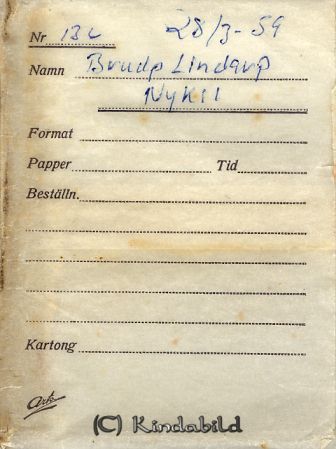 Nr 13c 28/3-59
Namn Brudp Lindarp
Nykil
Format
Papper Tid
Beställn.
Kartong
Ark
(C) Kindabild